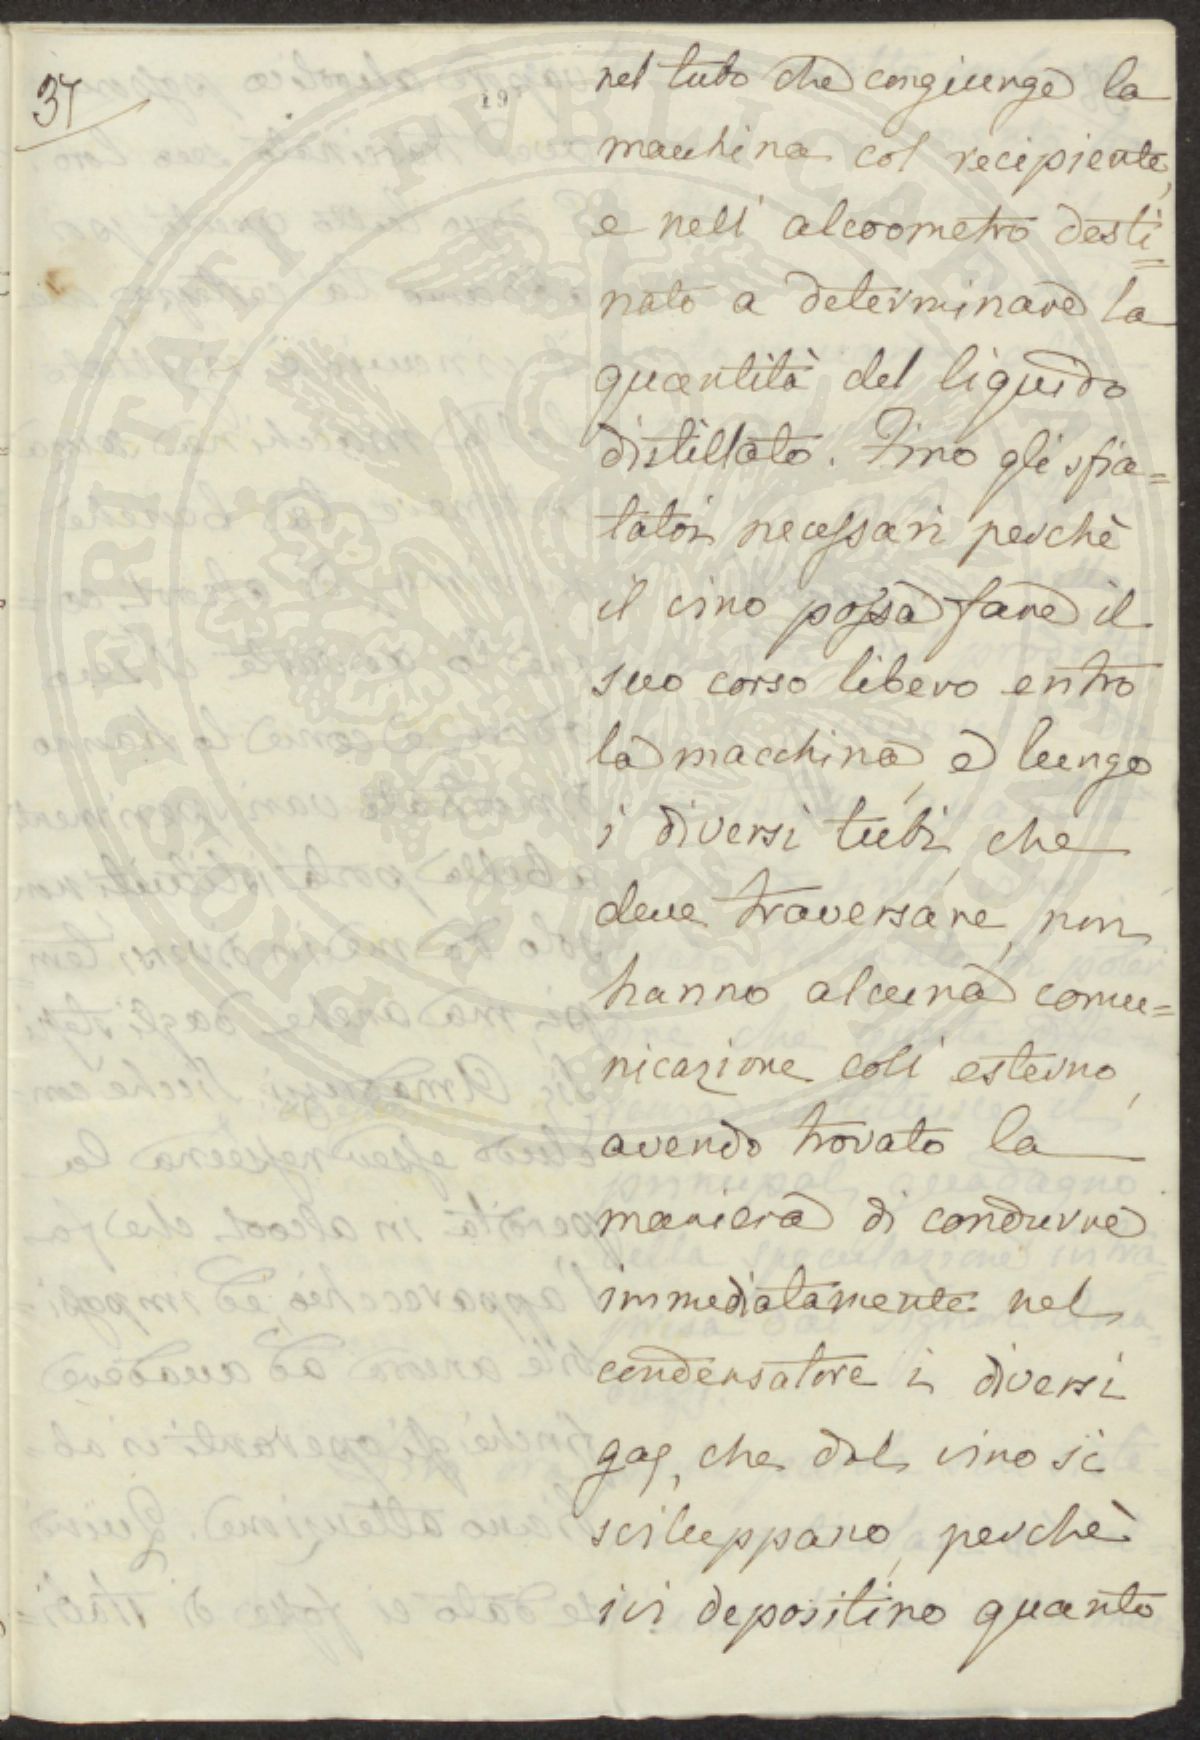 37
19
nel tubo che congiunge la
macchina col recipiente,
e nell' alcoometro desti=
nato a determinare la
quantità del liquido
distillato. Fino gli sfia=
tatoi necessari perchè
il vino possa fare il
suo corso libero entro
la macchina, e lungo
i diversi tubi, che
deve traversare, non
hanno alcuna comu=
nicazione coll' esterno,
avendo trovato la
maniera di condurre
immediatamente nel
condensatore i diversi
gas, che dal vino si
sviluppano, perchè
ivi depositino quanto